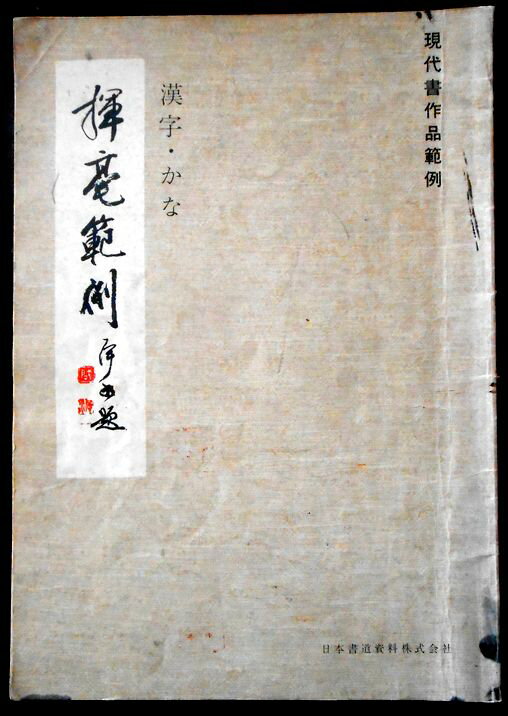 現代書作品範例
漢字・かな
揮毫範例
題
日本書道資料株式会社